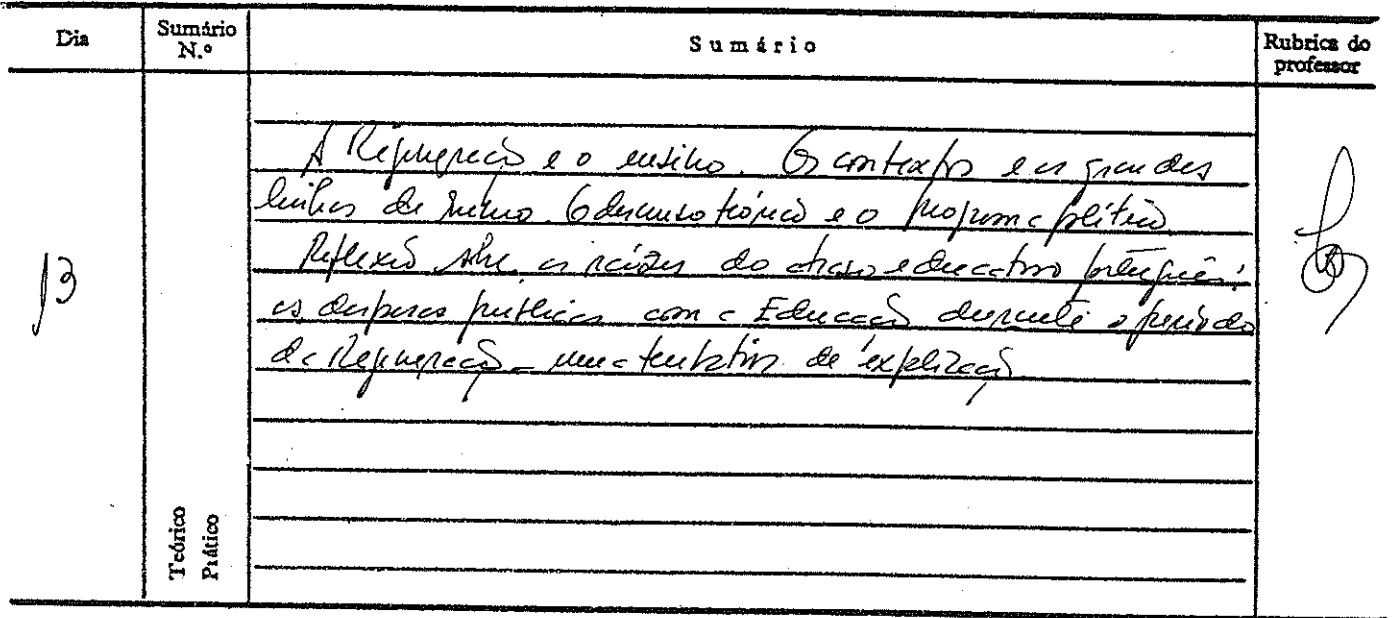 Dia
Sumário N.º
Sumário
Rubrica do professor
13
A Regeneração e o ensino. Os contextos e as grandes
linhas de rumo. O discurso teórico e o programa político.
Reflexão sobre as raízes do atraso educativo português:
as despesas públicas com a Educação durante o período
da Regeneração - uma tentativa de explicação.
Teórico
Prático